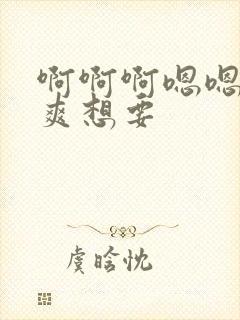 啊啊啊嗯嗯
爽想要
虞晗忱